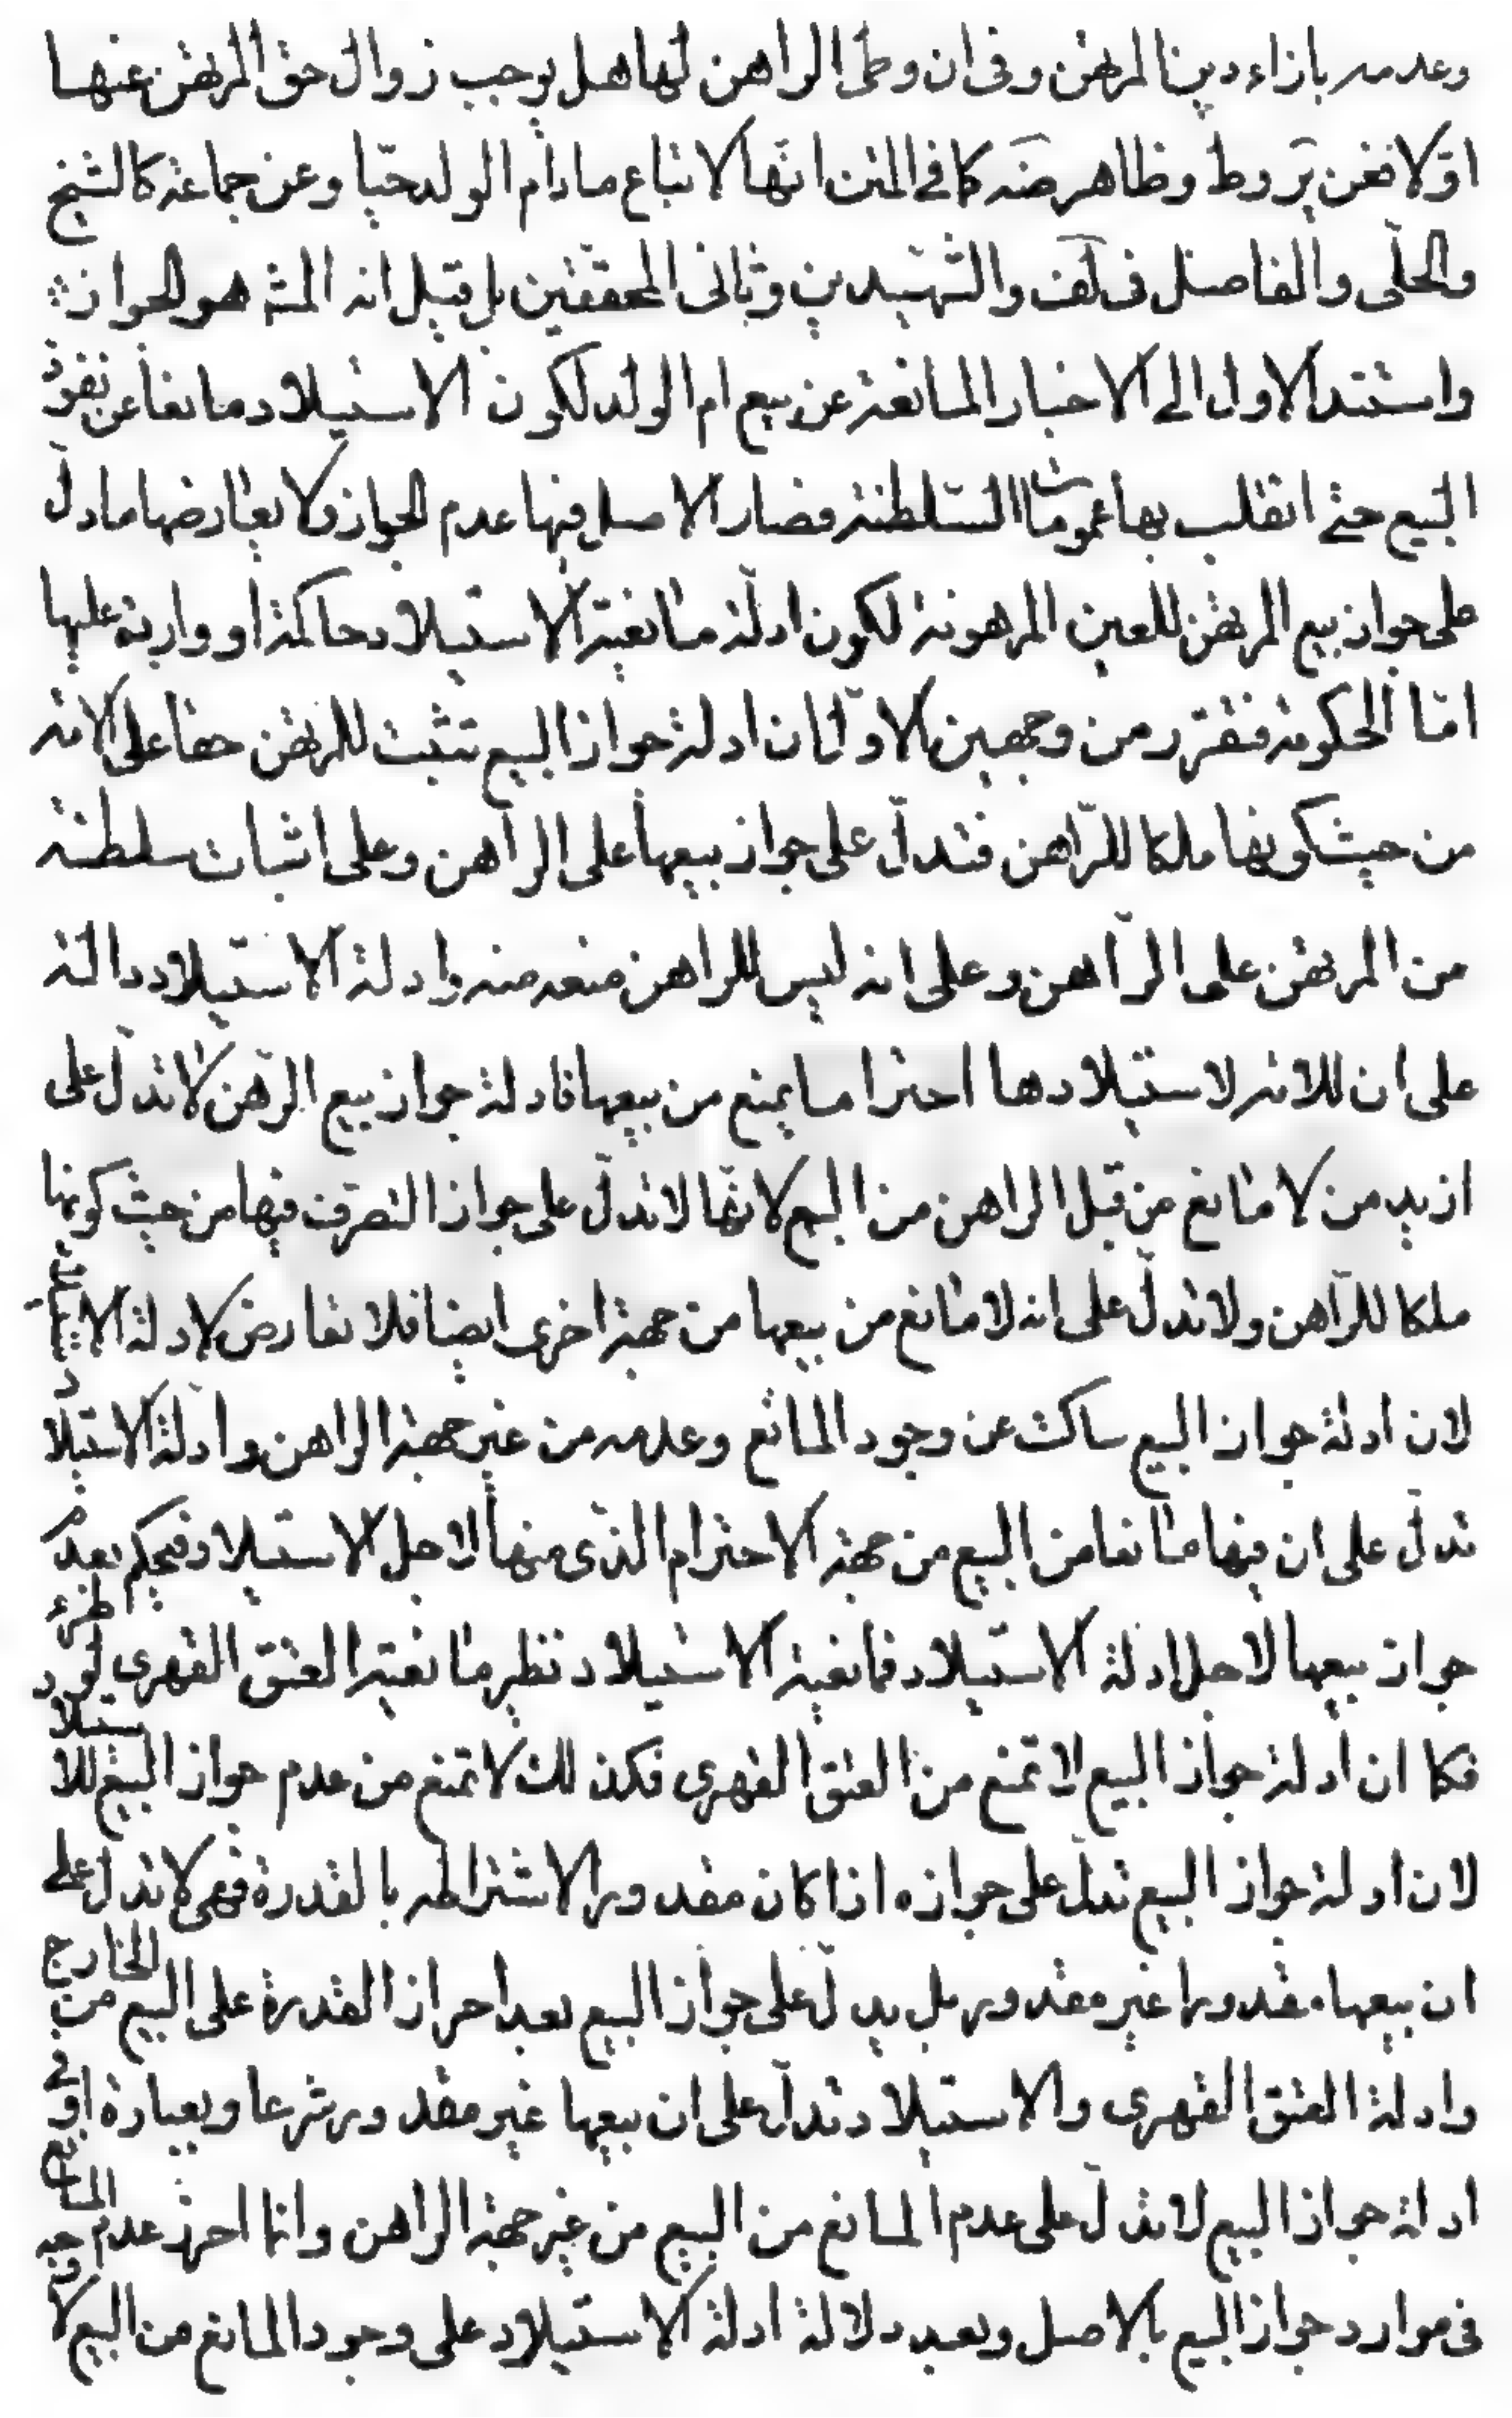 وعدمه بازاء دين المرتهن وفى ان وطى الراهن لها هل يوجب زوال حق المرتهن عنها
اوّلا فعن ير وط وظاهر ضه كما فى المتن انّها لا تباع مادام الولد حيّا وعن جماعة كالشيخ
والحلّى والفاضل فى لف والشّهيدين وثانى المحققين بل قيل انه المشه هو الجواز
واستند الاول الى الاخبار المانعة عن بيع ام الولد لكون الاستيلاد مانعا عن نفوذ
البيع حتى انقلب بها عمومات السّلطنة فصار الاصل فيها عدم الجواز ولا يعارضها مادلّ
على جواز بيع المرتهن للعين المرهونة لكون ادلّة مانعية الاستيلاد حاكمة او واردة عليها
امّا الحكومة فتقرّر من وجهين الاوّل ان ادلة جواز البيع تثبت للمرتهن حقا على الامة
من حيث كونها ملكا للرّاهن فتدلّ على جواز بيعها على الراهن وعلى اثبات سلطنة
من المرتهن على الرّاهن وعلى انه ليس للراهن منعه منه وادلة الاستيلاد دالة
على ان للامة لاستيلادها احتراما يمنع من بيعها فادلة جواز بيع الرّهن لا تدلّ على
ازيد من لا مانع من قبل الراهن من البيع لانّها لا تدلّ على جواز التصرّف فيها من حيث كونها
ملكا للرّاهن ولا تدلّ على انه لا مانع من بيعها من جهة اخرى ايضا فلا تعارض لادلة الاستيلاد
لان ادلة جواز البيع ساكت عن وجود المانع وعدمه من غير جهة الراهن وادلة الاستيلا
تدلّ على ان فيها مانعا من البيع من جهة الاحترام الذى فيها لاجل الاستيلاد فيحكم بعدم
جواز بيعها لاجل ادلة الاستيلاد فمانعية الاستيلاد نظير مانعية العتق القهرى لو طرء
فكما ان ادلة جواز البيع لا تمنع من العتق القهرى فكذلك لا تمنع من عدم جواز البيع للاستيلاد
لان ادلة جواز البيع تدل على جوازه اذا كان مقدورا لاشتراطه بالقدرة فهى لا تدل على
ان بيعها مقدورا غير مقدور بل يدلّ على جواز البيع بعد احراز القدرة على البيع من الخارج
وادلة العتق القهرى والاستيلاد تدلّ على ان بيعها غير مقدور شرعا وبعبارة اوفى
ادلة جواز البيع لا تدلّ على عدم المانع من البيع من غير جهة الراهن وانما احرز عدم المانع
فى موارد جواز البيع بالاصل وبعد دلالة ادلة الاستيلاد على وجود المانع من البيع لا وجه